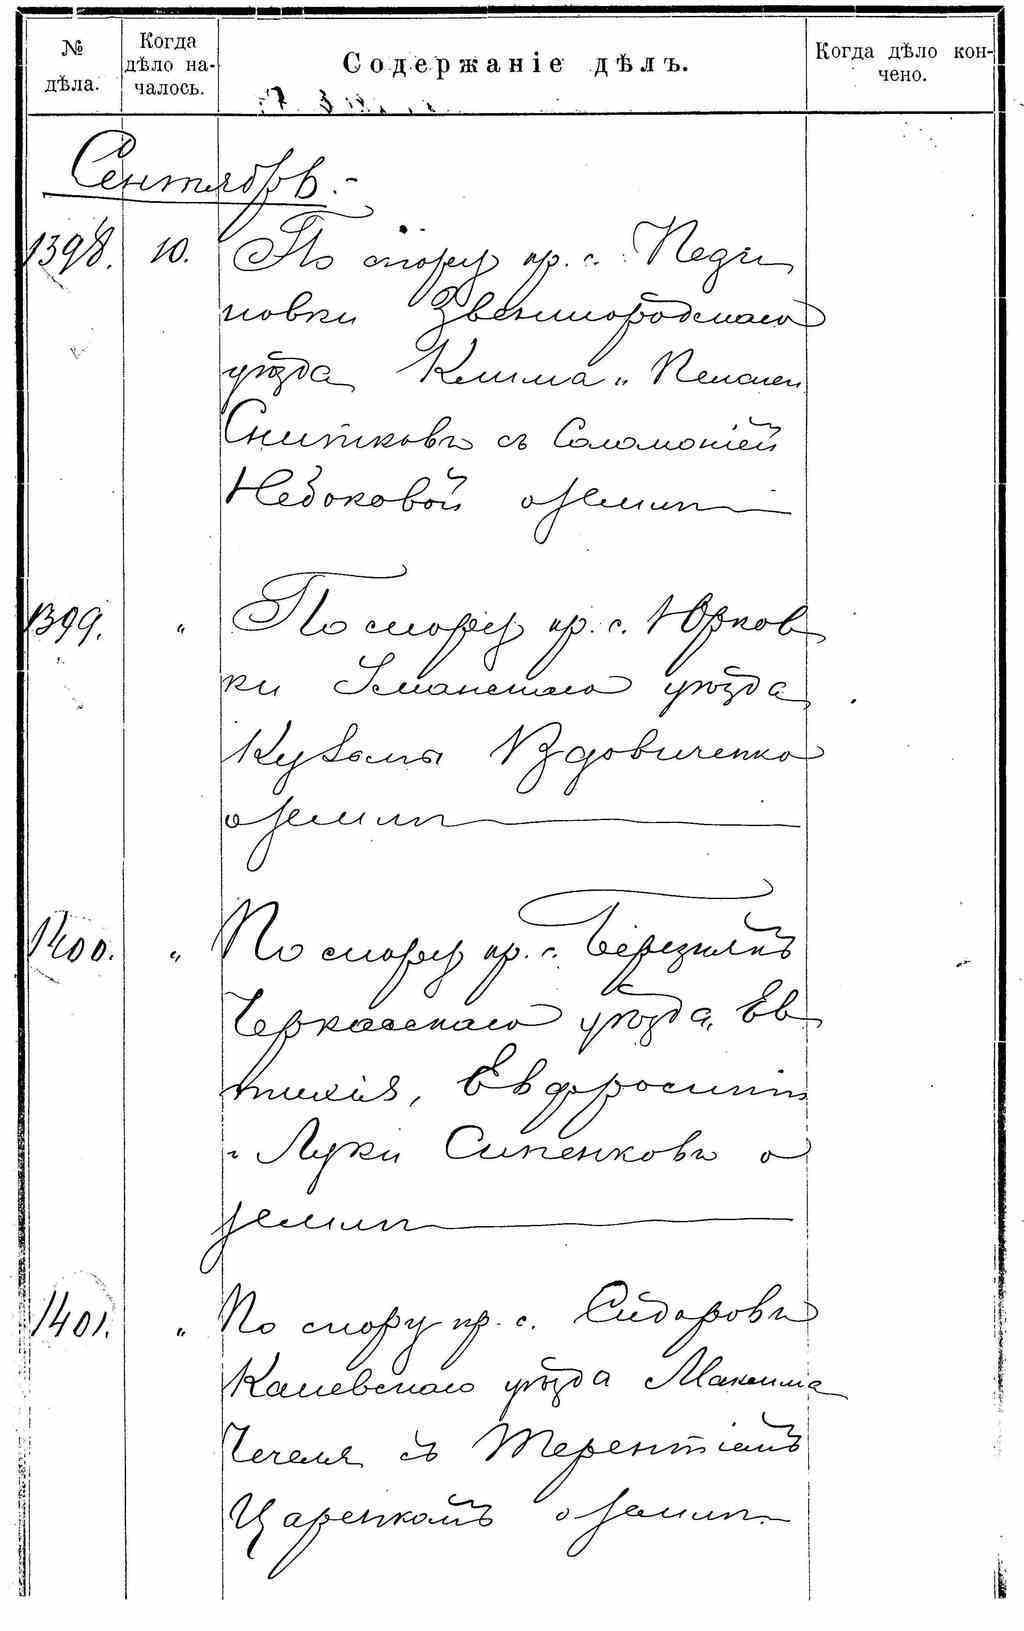 № дѣла.
Когда дѣло на-
чалось.
Содержаніе дѣлъ.
Когда дѣло кон-
чено.
Сентябрь.-
1398. 10. По спору кр. с. Педи
новки Звенигородскаго
уѣзда Клима и Пелагеи
Снитковъ съ Соломоніей
Недоковой о землѣ
1399. " По спору кр. с. Юрков
ки Уманскаго уѣзда
Кузьмы Вдовиченко
о землѣ
1400. " По спору кр. с. Березнякъ
Черкасскаго уѣзда, Ев
тихія, Евфросиніи
и Луки Сипенковъ о
землѣ
1401. " По спору кр. с. Сидоровки
Каневскаго уѣзда Максима
Чечеля съ Терентіемъ
Царенкомъ о землѣ.